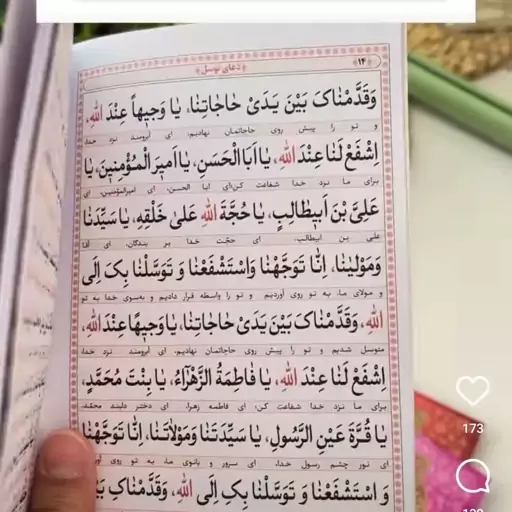 ﴿دعای توسل﴾
﴿۱۴﴾
وَقَدَّمْنٰاکَ بَیْنَ یَدَیْ حٰاجٰاتِنٰا، یٰا وَجیهاً عِنْدَ اللهِ،
و تو را پیش روی حاجاتمان نهادیم، ای آبرومند نزد خدا،
اِشْفَعْ لَنٰا عِنْدَ اللهِ، یٰا اَبَا الْحَسَنِ، یٰا اَمیرَ الْمُؤْمِنینَ، یٰا
برای ما نزد خدا شفاعت کن،ای ابا الحسن، ای امیرالمؤمنین، ای
عَلِیَّ بْنَ اَبیطٰالِبٍ، یٰا حُجَّةَ اللهِ عَلیٰ خَلْقِهِ، یٰا سَیِّدَنٰا
علی بن ابیطالب، ای حجّت خدا بر بندگان، ای آقا
وَمَوْلیٰنٰا، اِنّٰا تَوَجَّهْنٰا وَاسْتَشْفَعْنٰا وَ تَوَسَّلْنٰا بِکَ اِلَی
و مولای ما، به تو روی آوردیم و تو را واسطه قرار دادیم و به‌سوی خدا به تو
اللهِ، وَقَدَّمْنٰاکَ بَیْنَ یَدَیْ حٰاجٰاتِنٰا، یٰا وَجیهاً عِنْدَ اللهِ،
متوسل شدیم و تو را پیش روی حاجاتمان نهادیم، ای آبرومند نزد خدا،
اِشْفَعْ لَنٰا عِنْدَ اللهِ، یٰا فٰاطِمَةُ الزَّهْرٰاءُ، یٰا بِنْتَ مُحَمَّدٍ،
برای ما نزد خدا شفاعت کن، ای فاطمه زهرا، ای دختر دلبند محمّد،
یٰا قُرَّةَ عَیْنِ الرَّسُولِ، یٰا سَیِّدَتَنٰا وَمَوْلاٰتَنٰا، اِنّٰا تَوَجَّهْنٰا
ای نور چشم رسول خدا، ای سرور و بانوی ما، به تو روی
وَ اسْتَشْفَعْنٰا وَ تَوَسَّلْنٰا بِکِ اِلَی اللهِ، وَقَدَّمْنٰاکِ
173